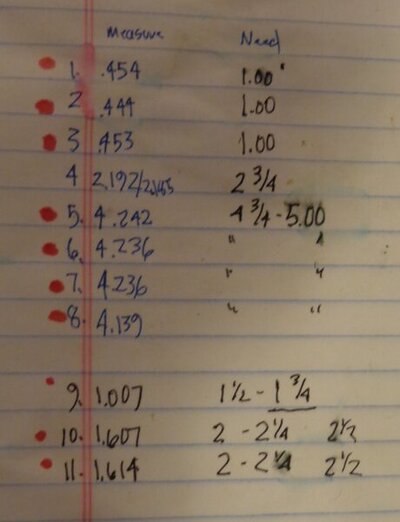 Measure Need
1. .454 1.00"
2 .444 1.00
3 .453 1.00
4 2.192/ 2 3/4
5. 4.242 4 3/4 - 5.00
6. 4.236 " "
7. 4.236 " "
8. 4.139 " "
9. 1.007 1 1/2 - 1 3/4
10. 1.607 2 - 2 1/4 2 1/2
11. 1.614 2 - 2 1/4 2 1/2